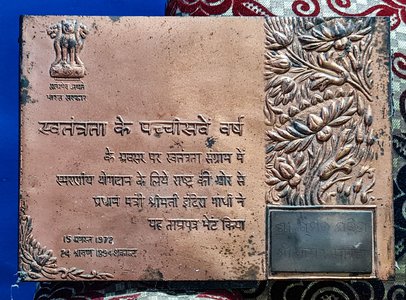 सत्यमेव जयते
भारत सरकार
स्वतंत्रता के पच्चीसवें वर्ष
के अवसर पर स्वतंत्रता संग्राम में
स्मरणीय योगदान के लिये राष्ट्र की ओर से
प्रधान मंत्री श्रीमती इंदिरा गांधी ने
यह ताम्रपत्र भेंट किया
15 अगस्त 1972
24 श्रावण 1894 शकाब्द